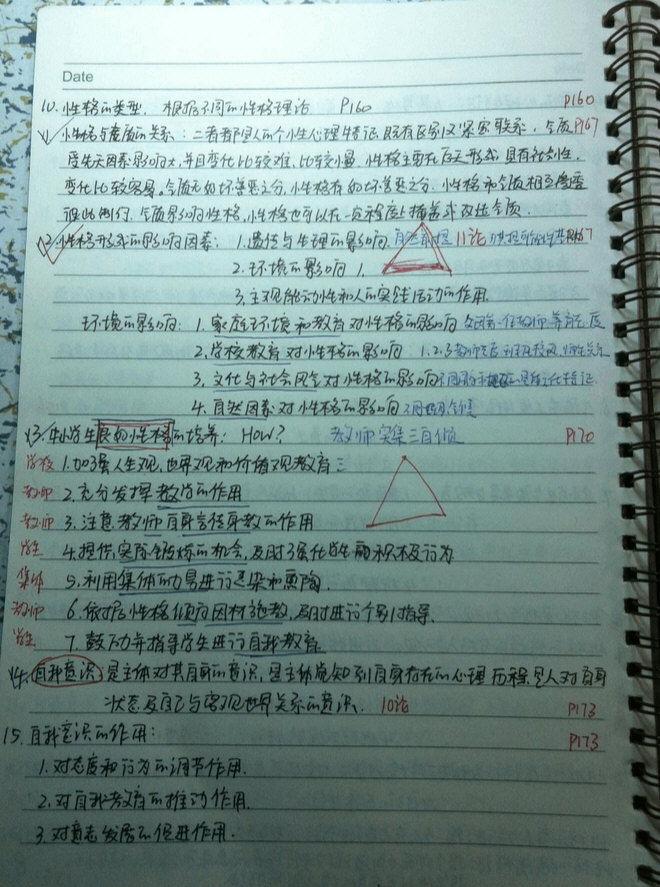 Date
10. 性格的类型. 根据不同的性格理论 P160 P160
11. 性格与气质的关系: 二者都是人的个性心理特征, 既有区别又紧密联系. 气质 P167
受先天因素影响大, 并且变化比较难, 比较小显. 性格主要在后天形成, 具有社会性,
变化比较容易. 气质无好坏善恶之分, 性格有好坏善恶之分. 性格和气质相互渗透
彼此制约. 气质影响性格, 性格也可以在一定程度上掩盖或改造气质.
12. 性格形成的影响因素: 1. 遗传与生理的影响. 自然前提 11论 P167
2. 环境的影响 1.
3. 主观能动性和人的实践活动的作用.
环境的影响: 1. 家庭环境和教育对性格的影响
2. 学校教育对性格的影响 1.2.3
3. 文化与社会风气对性格的影响
4. 自然因素对性格的影响
13. 中小学生良好性格的培养: HOW? 教师实集三自倾 P170
学校 1. 加强人生观, 世界观和价值观教育 三
教师 2. 充分发挥教学的作用
教师 3. 注意教师自身言径身教的作用
学生 4. 提供实际锻炼的机会, 及时强化学生的积极行为
集体 5. 利用集体的力量进行感染和熏陶.
教师 6. 依据性格倾向因材施教, 及时进行个别指导.
学生 7. 鼓励并指导学生进行自我教育.
14. 自我意识, 是主体对其自身的意识, 是主体觉知到自身存在的心理历程. 是人对自身
状态及自己与客观世界关系的意识. 10论 P173
15. 自我意识的作用: P173
1. 对态度和行为的调节作用.
2. 对自我教育的推动作用.
3. 对意志发展的促进作用.